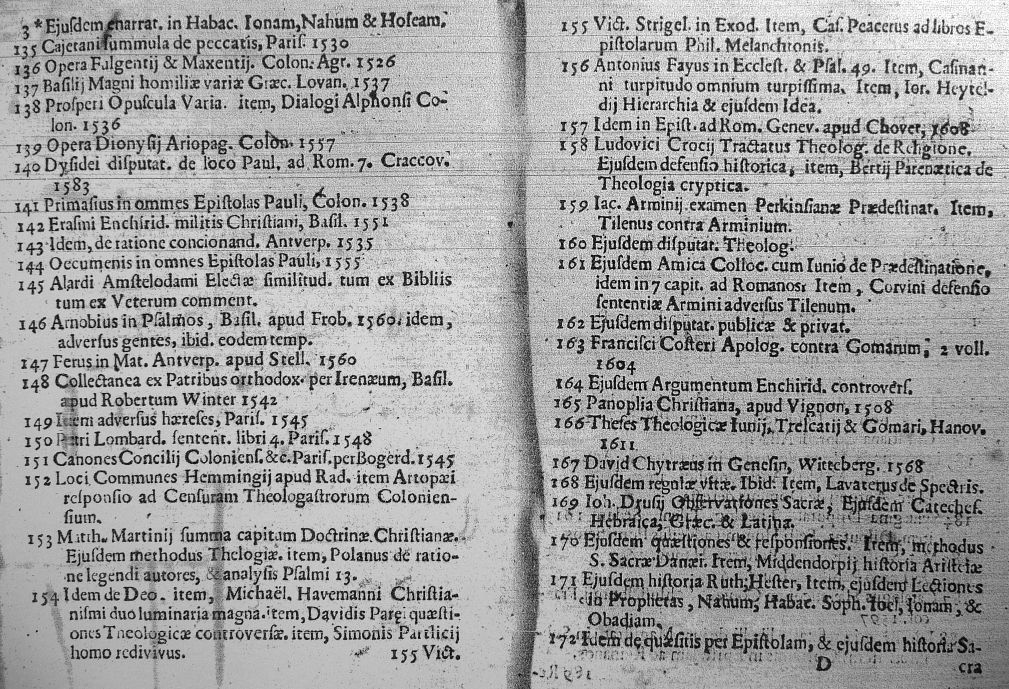 3 * Ejuſdem enarrat. in Habac. Ionam, Nahum & Hoſeam.
135 Cajetani ſummula de peccatis, Pariſ. 1530
136 Opera Fulgentij & Maxentij. Colon. Agr. 1526
137 Baſilij Magni homiliæ variæ Græc. Lovan. 1537
138 Proſperi Opuſcula Varia. item, Dialogi Alphonſi Co-
lon. 1536
139 Opera Dionyſij Ariopag. Colon. 1557
140 Dyſidei diſputat. de loco Paul. ad Rom. 7. Craccov.
1583
141 Primaſius in ommes Epiſtolas Pauli, Colon. 1538
142 Eraſini Enchirid. militis Chriſtiani, Baſil. 1551
143 Idem, de ratione concionand. Antverp. 1535
144 Oecumenis in omnes Epiſtolas Pauli, 1555
145 Alardi Amſtelodami Electæ ſimilitud. tum ex Bibliis
tum ex Veterum comment.
146 Arnobius in Pſalmos, Baſil. apud Frob. 1560. idem,
adverſus gentes, ibid. eodem temp.
147 Ferus in Mat. Antverp. apud Stell. 1560
148 Collectanea ex Patribus orthodox. per Irenæum, Baſil.
apud Robertum Winter 1542
149 Idem adverſus hæreſes, Pariſ. 1545
150 Petri Lombard. ſentent. libri 4. Pariſ. 1548
151 Canones Concilij Colonienſ. &c. Pariſ. per Bogerd. 1545
152 Loci Communes Hemmingij apud Rad. item Artopæi
reſponſio ad Cenſuram Theologaſtrorum Colonien-
ſium.
153 Matth. Martinij ſumma capitum Doctrinæ Chriſtianæ.
Ejuſdem methodus Thelogiæ. item, Polanus de ratio-
ne legendi autores, & analyſis Pſalmi 13.
154 Idem de Deo. item, Michaël. Havemanni Chriſtia-
niſmi duo luminaria magna. item, Davidis Parei quæſti-
ones Theologicæ controverſæ. item, Simonis Partlicij
homo redivivus. 155 Vict.
155 Vict. Strigel. in Exod. Item, Caſ. Peacerus ad libros E-
piſtolarum Phil. Melanchtonis.
156 Antonius Fayus in Eccleſt. & Pſal. 49. Item, Caſinan-
ni turpitudo omnium turpiſſima. Item, Ior. Heytel-
dij Hierarchia & ejuſdem Idea.
157 Idem in Epiſt. ad Rom. Genev. apud Chover, 1608
158 Ludovici Crocij Tractatus Theolog. de Religione.
Ejuſdem defenſio hiſtorica, item, Bertij Parenætica de
Theologia cryptica.
159 Iac. Arminij examen Perkinſianæ Prædeſtinat. Item,
Tilenus contra Arminium.
160 Ejuſdem diſputat. Theolog.
161 Ejuſdem Amica Colloc. cum Iunio de Prædeſtinatione,
idem in 7 capit. ad Romanos: Item, Corvini defenſio
ſententiæ Armini adverſus Tilenum.
162 Ejuſdem diſputat. publicæ & privat.
163 Franciſci Coſteri Apolog. contra Gomarum, 2 voll.
1604
164 Ejuſdem Argumentum Enchirid. controverſ.
165 Panoplia Chriſtiana, apud Vignon, 1508
166 Theſes Theologicæ Iunij, Trelcatij & Gomari, Hanov.
1611
167 David Chytræus in Geneſin, Witteberg. 1568
168 Ejuſdem regulæ vitæ. Ibid: Item, Lavaterus de Spectris.
169 Ioh. Druſij Obſervationes Sacræ, Ejuſdem Catecheſ.
Hebraica, Græc. & Latina.
170 Ejuſdem quæſtiones & reſponſiones. Item, methodus
S. Sacræ Danæi. Item, Middendorpij hiſtoria Ariſteæ
171 Ejuſdem hiſtoria Ruth, Heſter, Item, ejuſdem Lectiones
in Prophetas, Nahum, Habac. Soph. Ioel, Ionam, &
Obadiam.
172 Idem de quæſitis per Epiſtolam, & ejuſdem hiſtoria Sa-
D cra